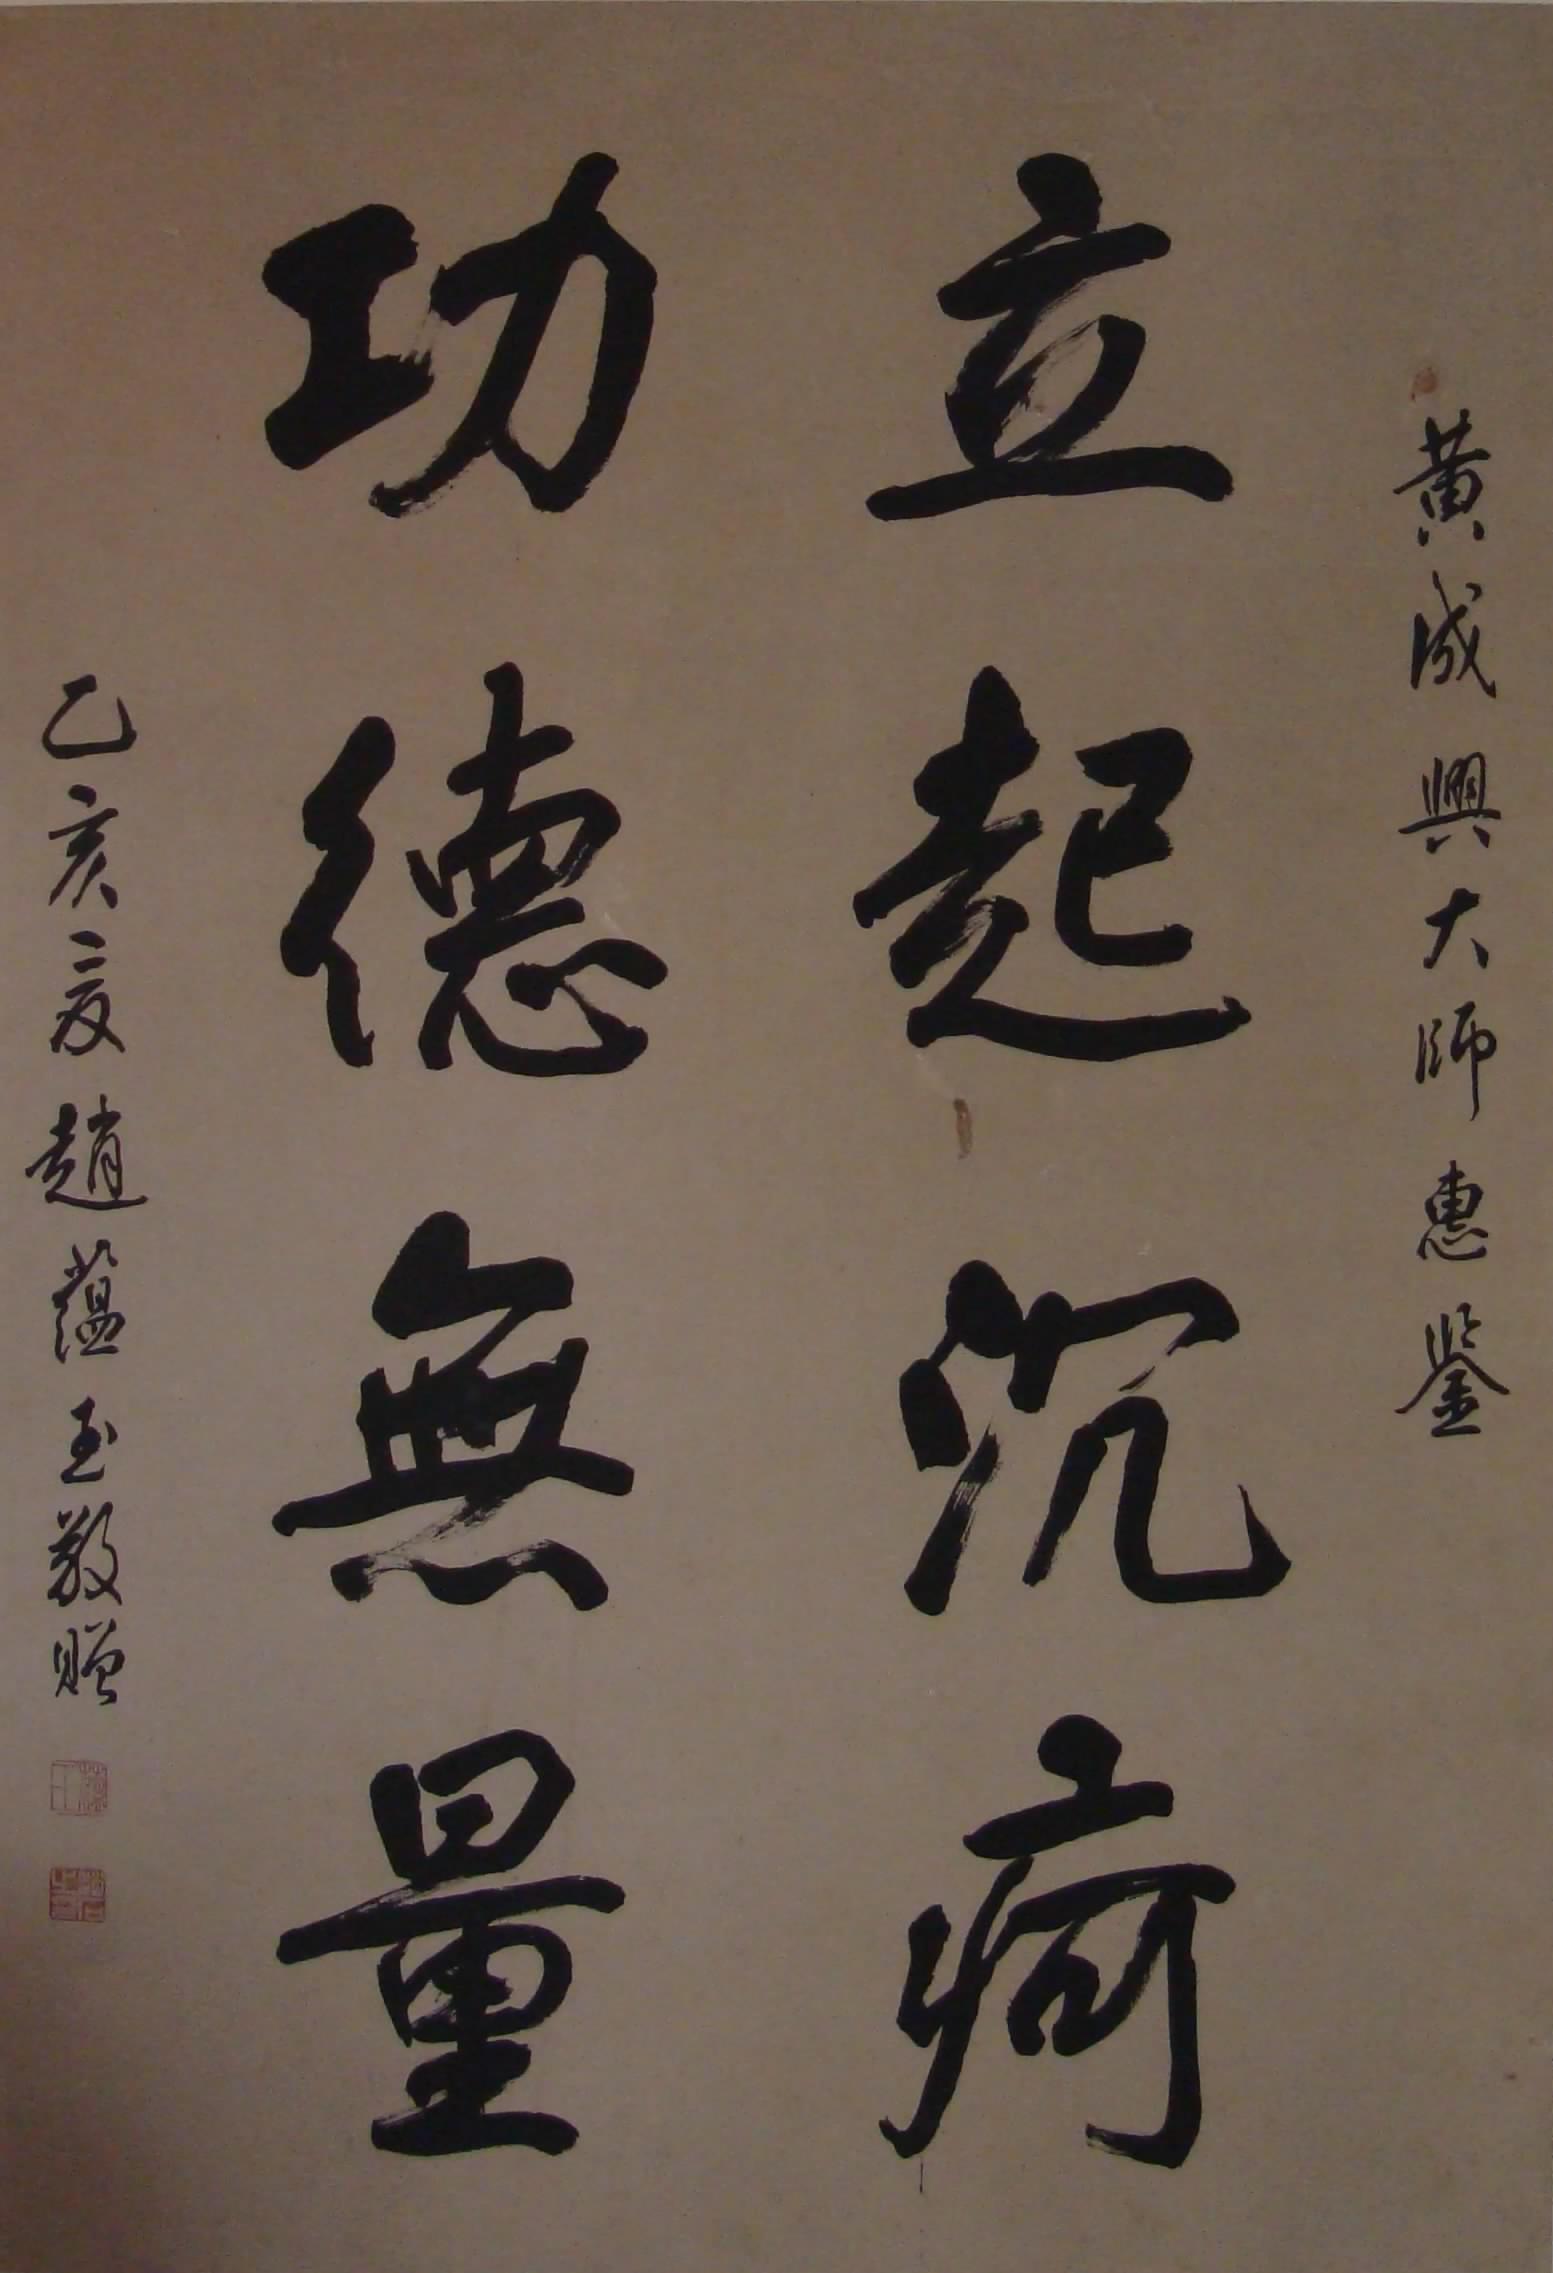 黄成興大師惠鑒
立起沉疴
功德無量
乙亥夏趙蘊玉敬贈